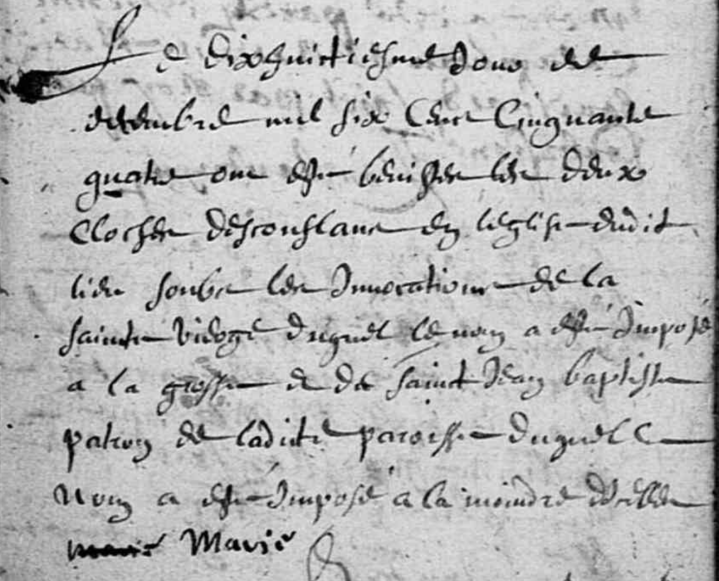 Le dixhuictiesme Jour de
decembre mil six Cent Cinquante
quatre ont esté benistes les deux
Cloches desconflans en leglise dudit
lieu soubs les Invocations de la
sainte vierge duquel le nom a esté Imposé
a la grosse et de saint Jean baptiste
patron de ladicte paroisse duquel le
Nom a esté Imposé a la moindre
Marie